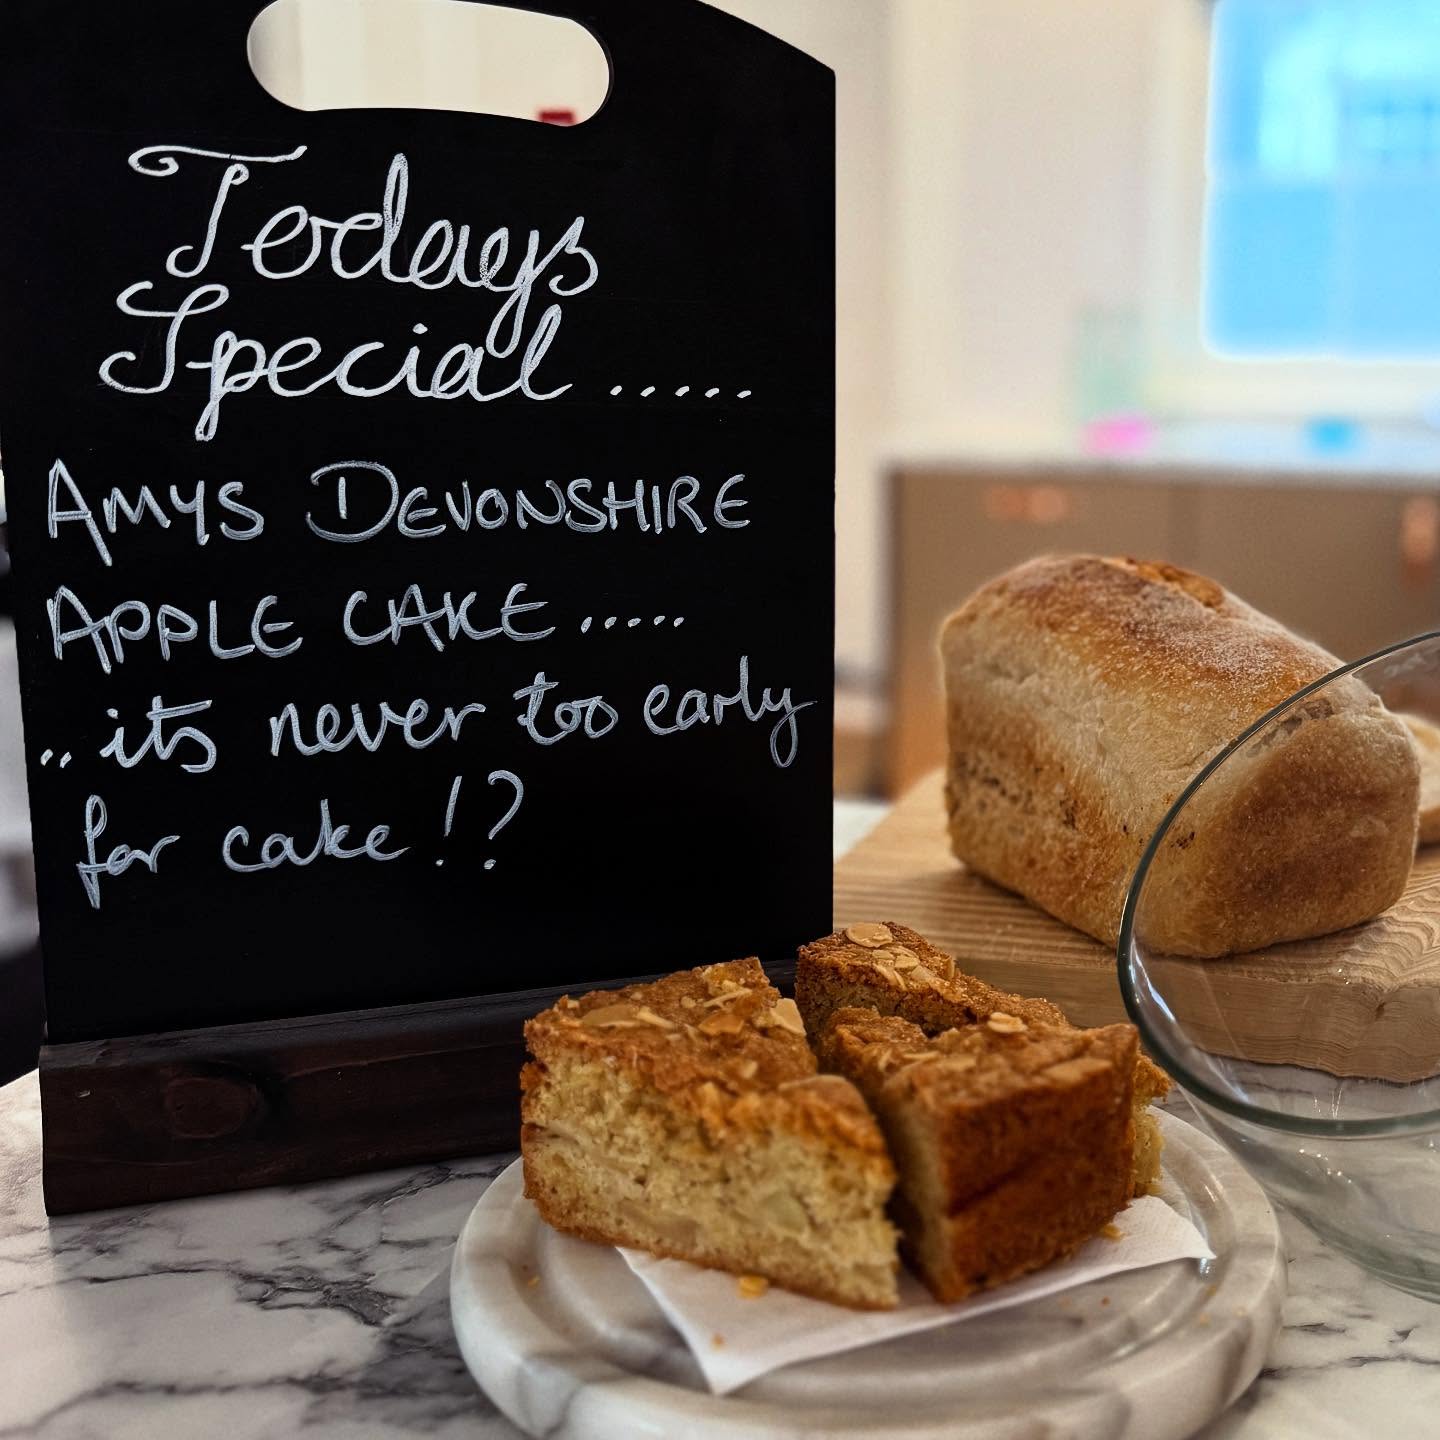 Todays
Special.....
AMYS DEVONSHIRE
APPLE CAKE.....
..its never too early
for cake!?